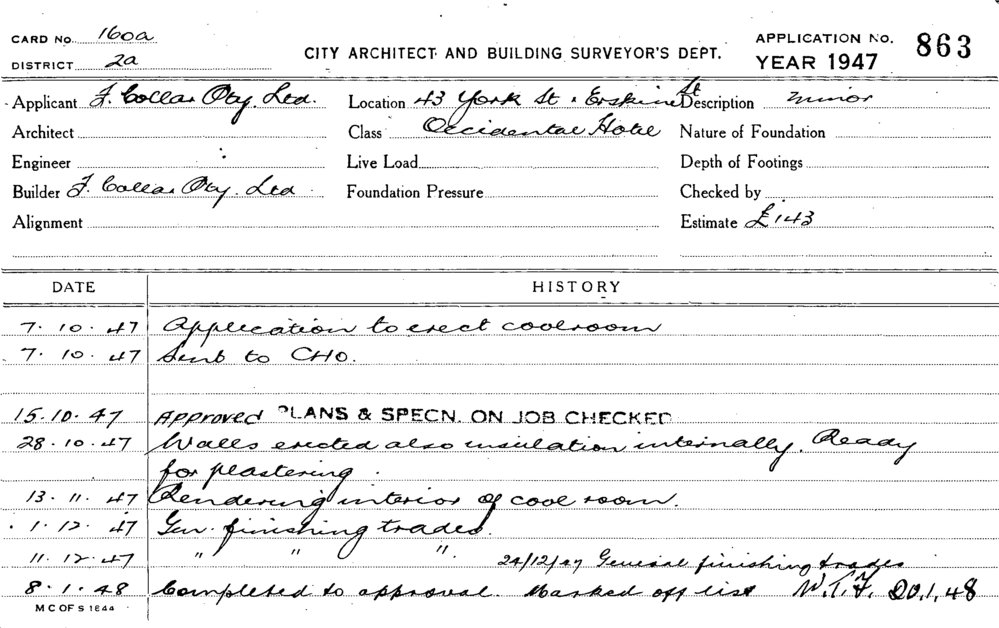 CARD No. 160a
DISTRICT 2a
CITY ARCHITECT AND BUILDING SURVEYOR'S DEPT.
APPLICATION No. 863
YEAR 1947
Applicant F. Collar Pty. Ltd. Location 43 York St & Erskine St Description minor
Architect Class Occidental Hotel Nature of Foundation
Engineer Live Load Depth of Footings
Builder F. Collar Pty. Ltd Foundation Pressure Checked by
Alignment Estimate £143
DATE HISTORY
7. 10. 47 Application to erect coolroom
7. 10. 47 Sent to CHO.
15. 10. 47 Approved PLANS & SPECN. ON JOB CHECKED
28. 10. 47 Walls erected also insulation internally. Ready
for plastering.
13. 11. 47 Rendering interior of cool room.
1. 12. 47 Gen. finishing trades.
11. 12. 47 " " ". 24/12/47 General finishing trades
8. 1. 48 Completed to approval. Marked off list W.T.F. 20.1.48
M C OF S 1644